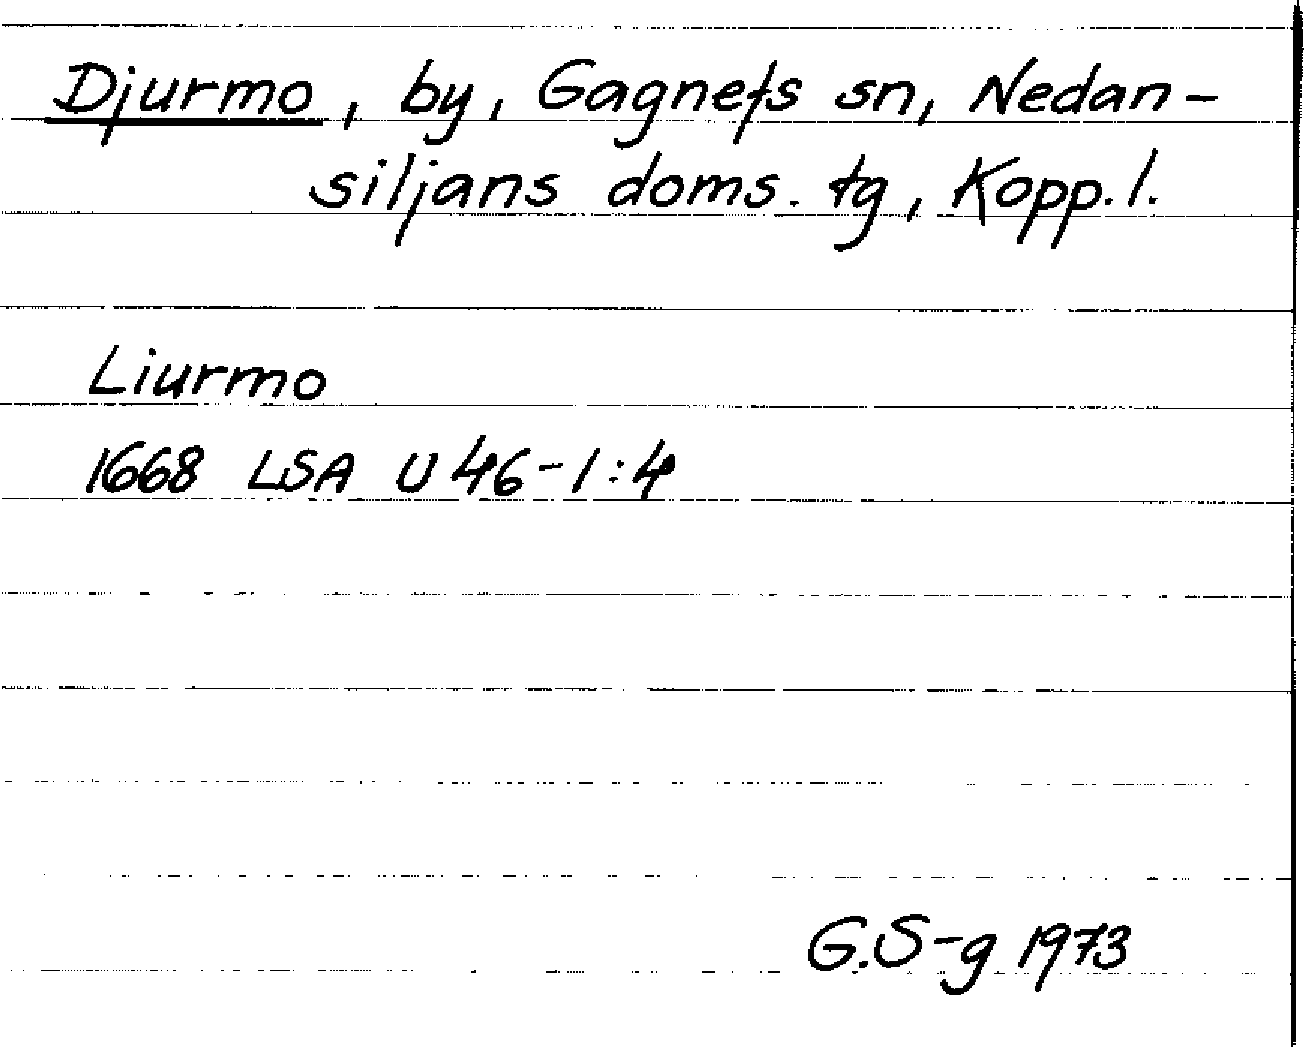 Djurmo, by, Gagnefs sn, Nedan-
siljans doms. tg, Kopp. l.
Liurmo
1668 LSA U 46-1:4
G.S-g 1973